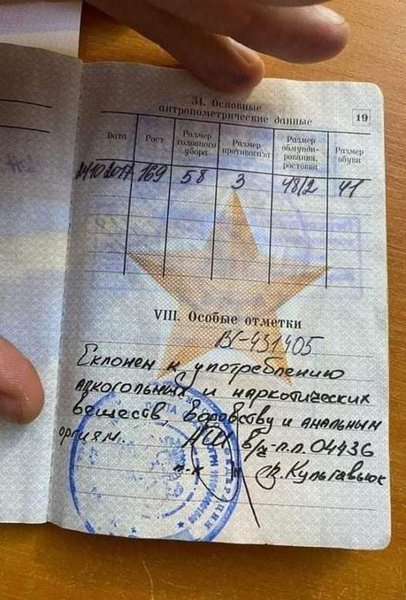 31. Основные
антропометрические данные
19
Дата Рост Размер головного убора Размер противогаза Размер обмунди-рования, ростовка Размер обуви
10.2017 169 58 3 48/2 41
VIII. Особые отметки
ВС-431405
Склонен к употреблению
алкогольных и наркотических
веществ, воровству и анальным
оргиям. В/ч-п.п. 04436
п-к Кульгавюк